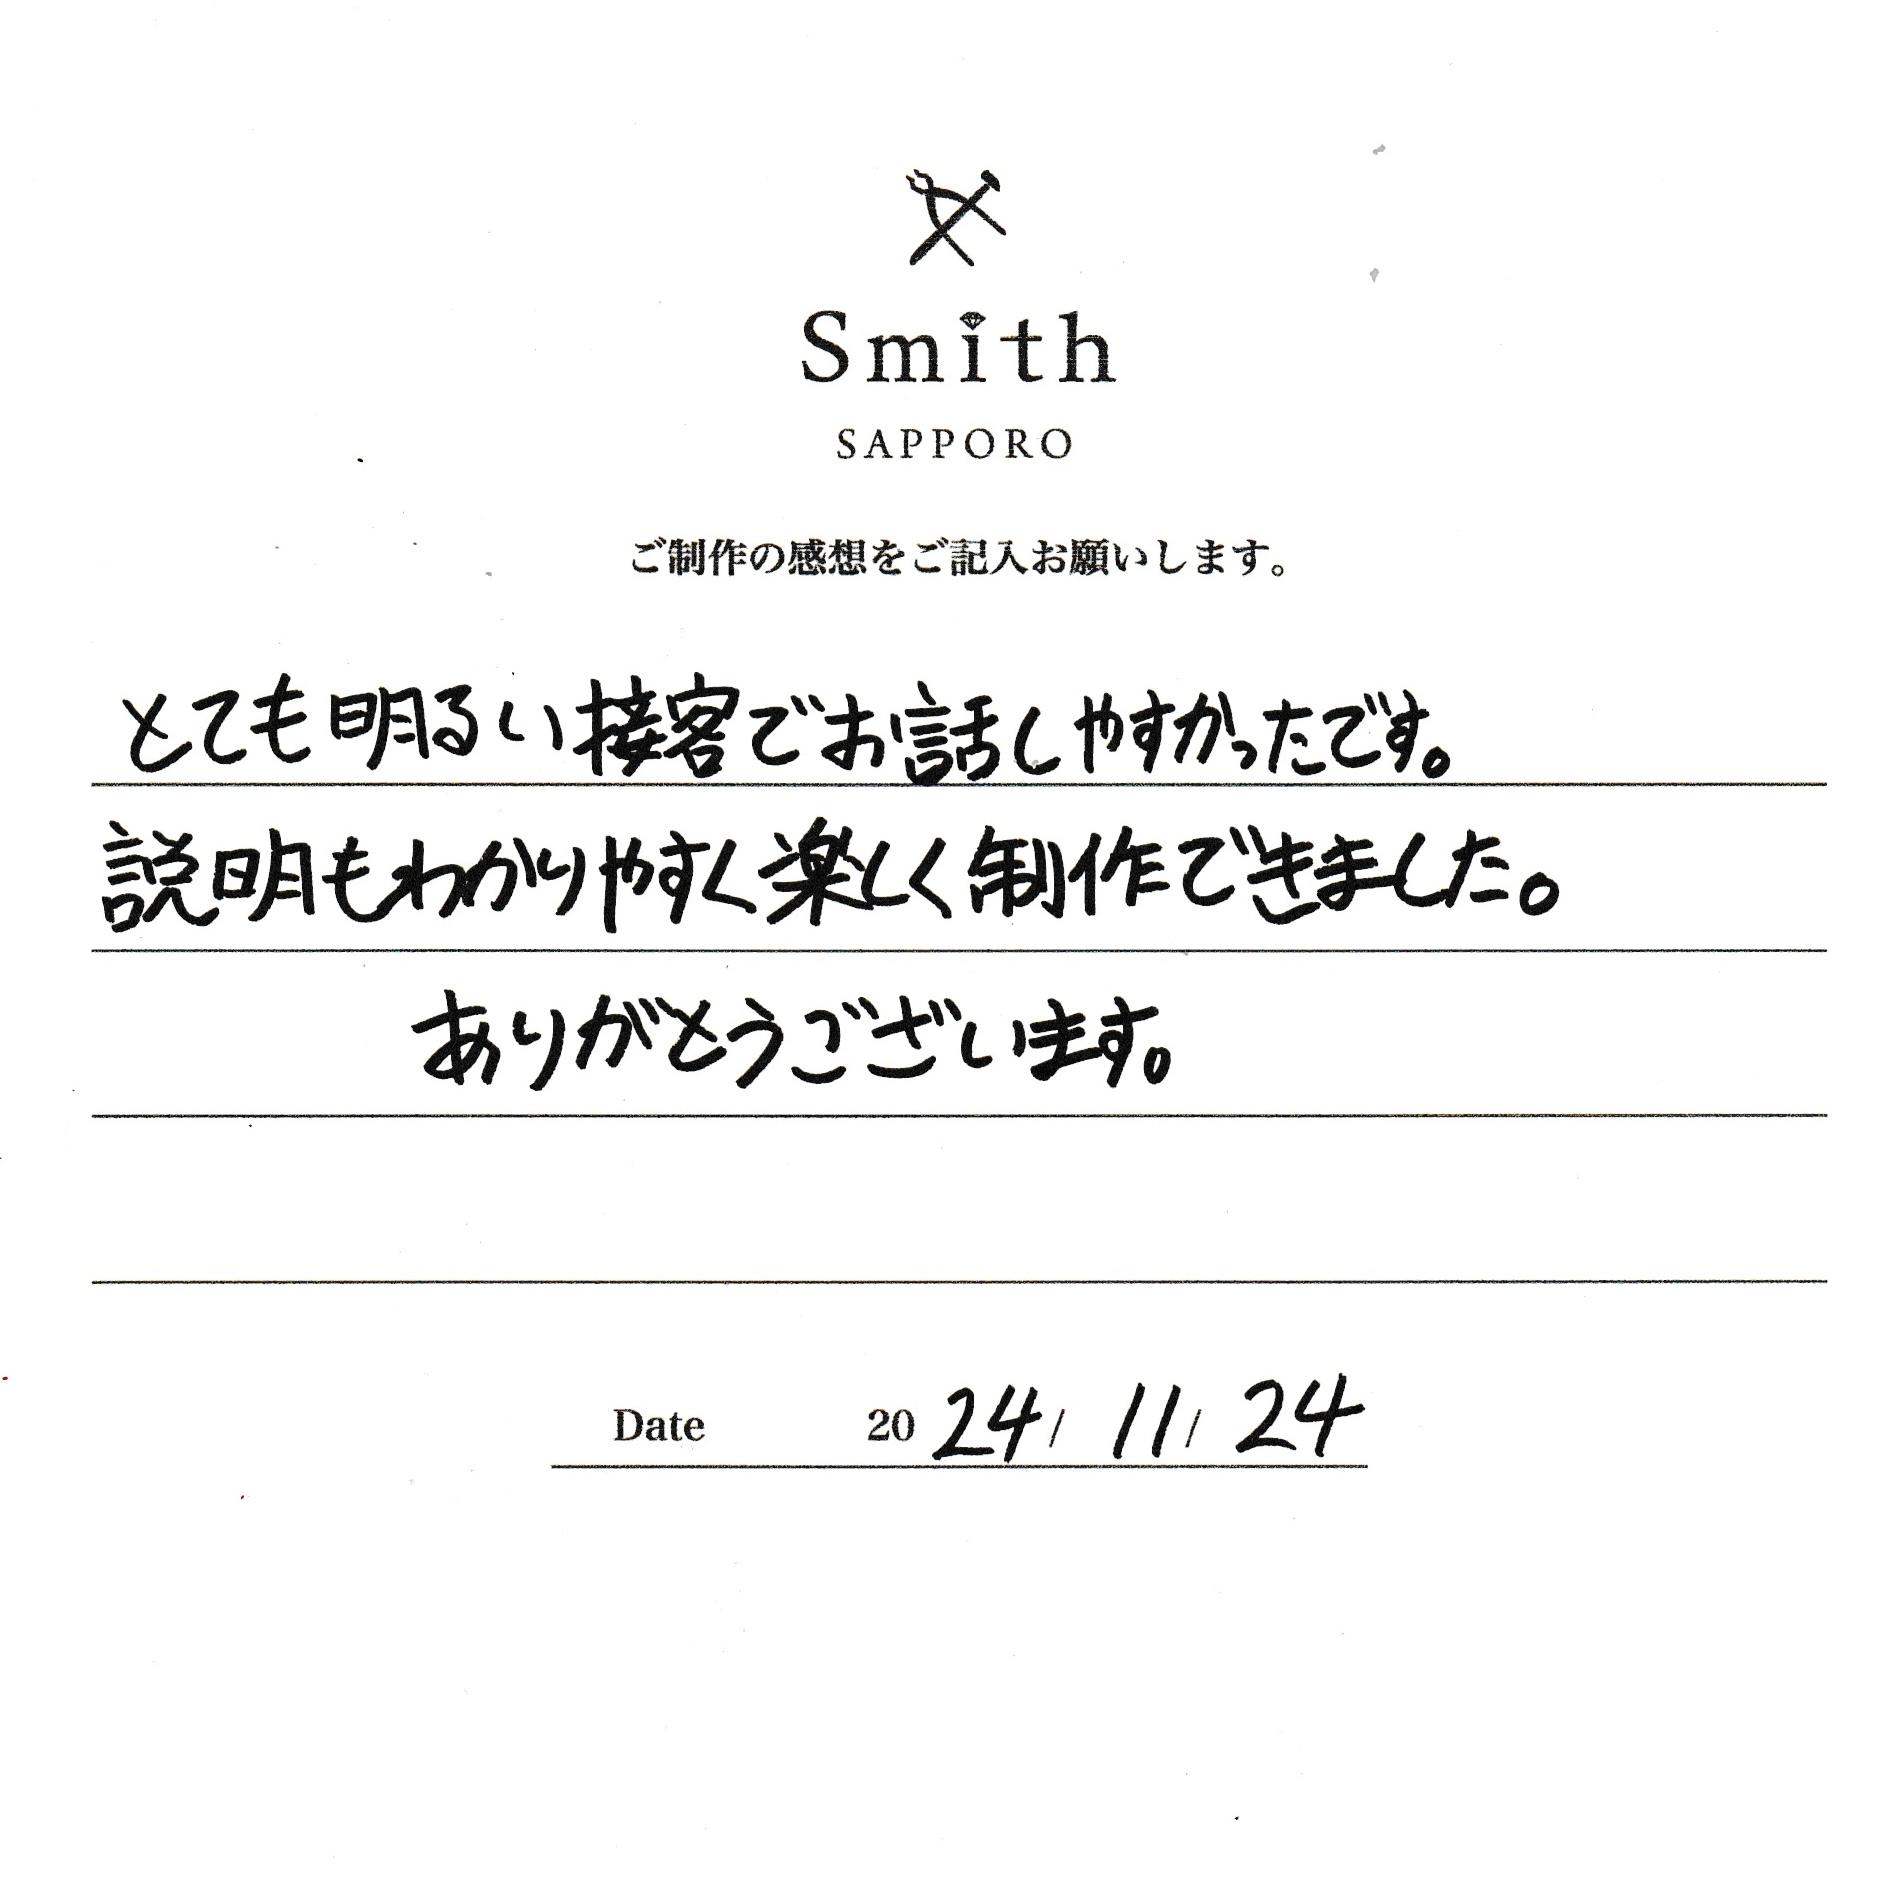 Smith
SAPPORO
ご制作の感想をご記入お願いします。
とても明るい接客でお話しやすかったです。
説明もわかりやすく楽しく制作できました。
ありがとうございます。
Date 2024/11/24